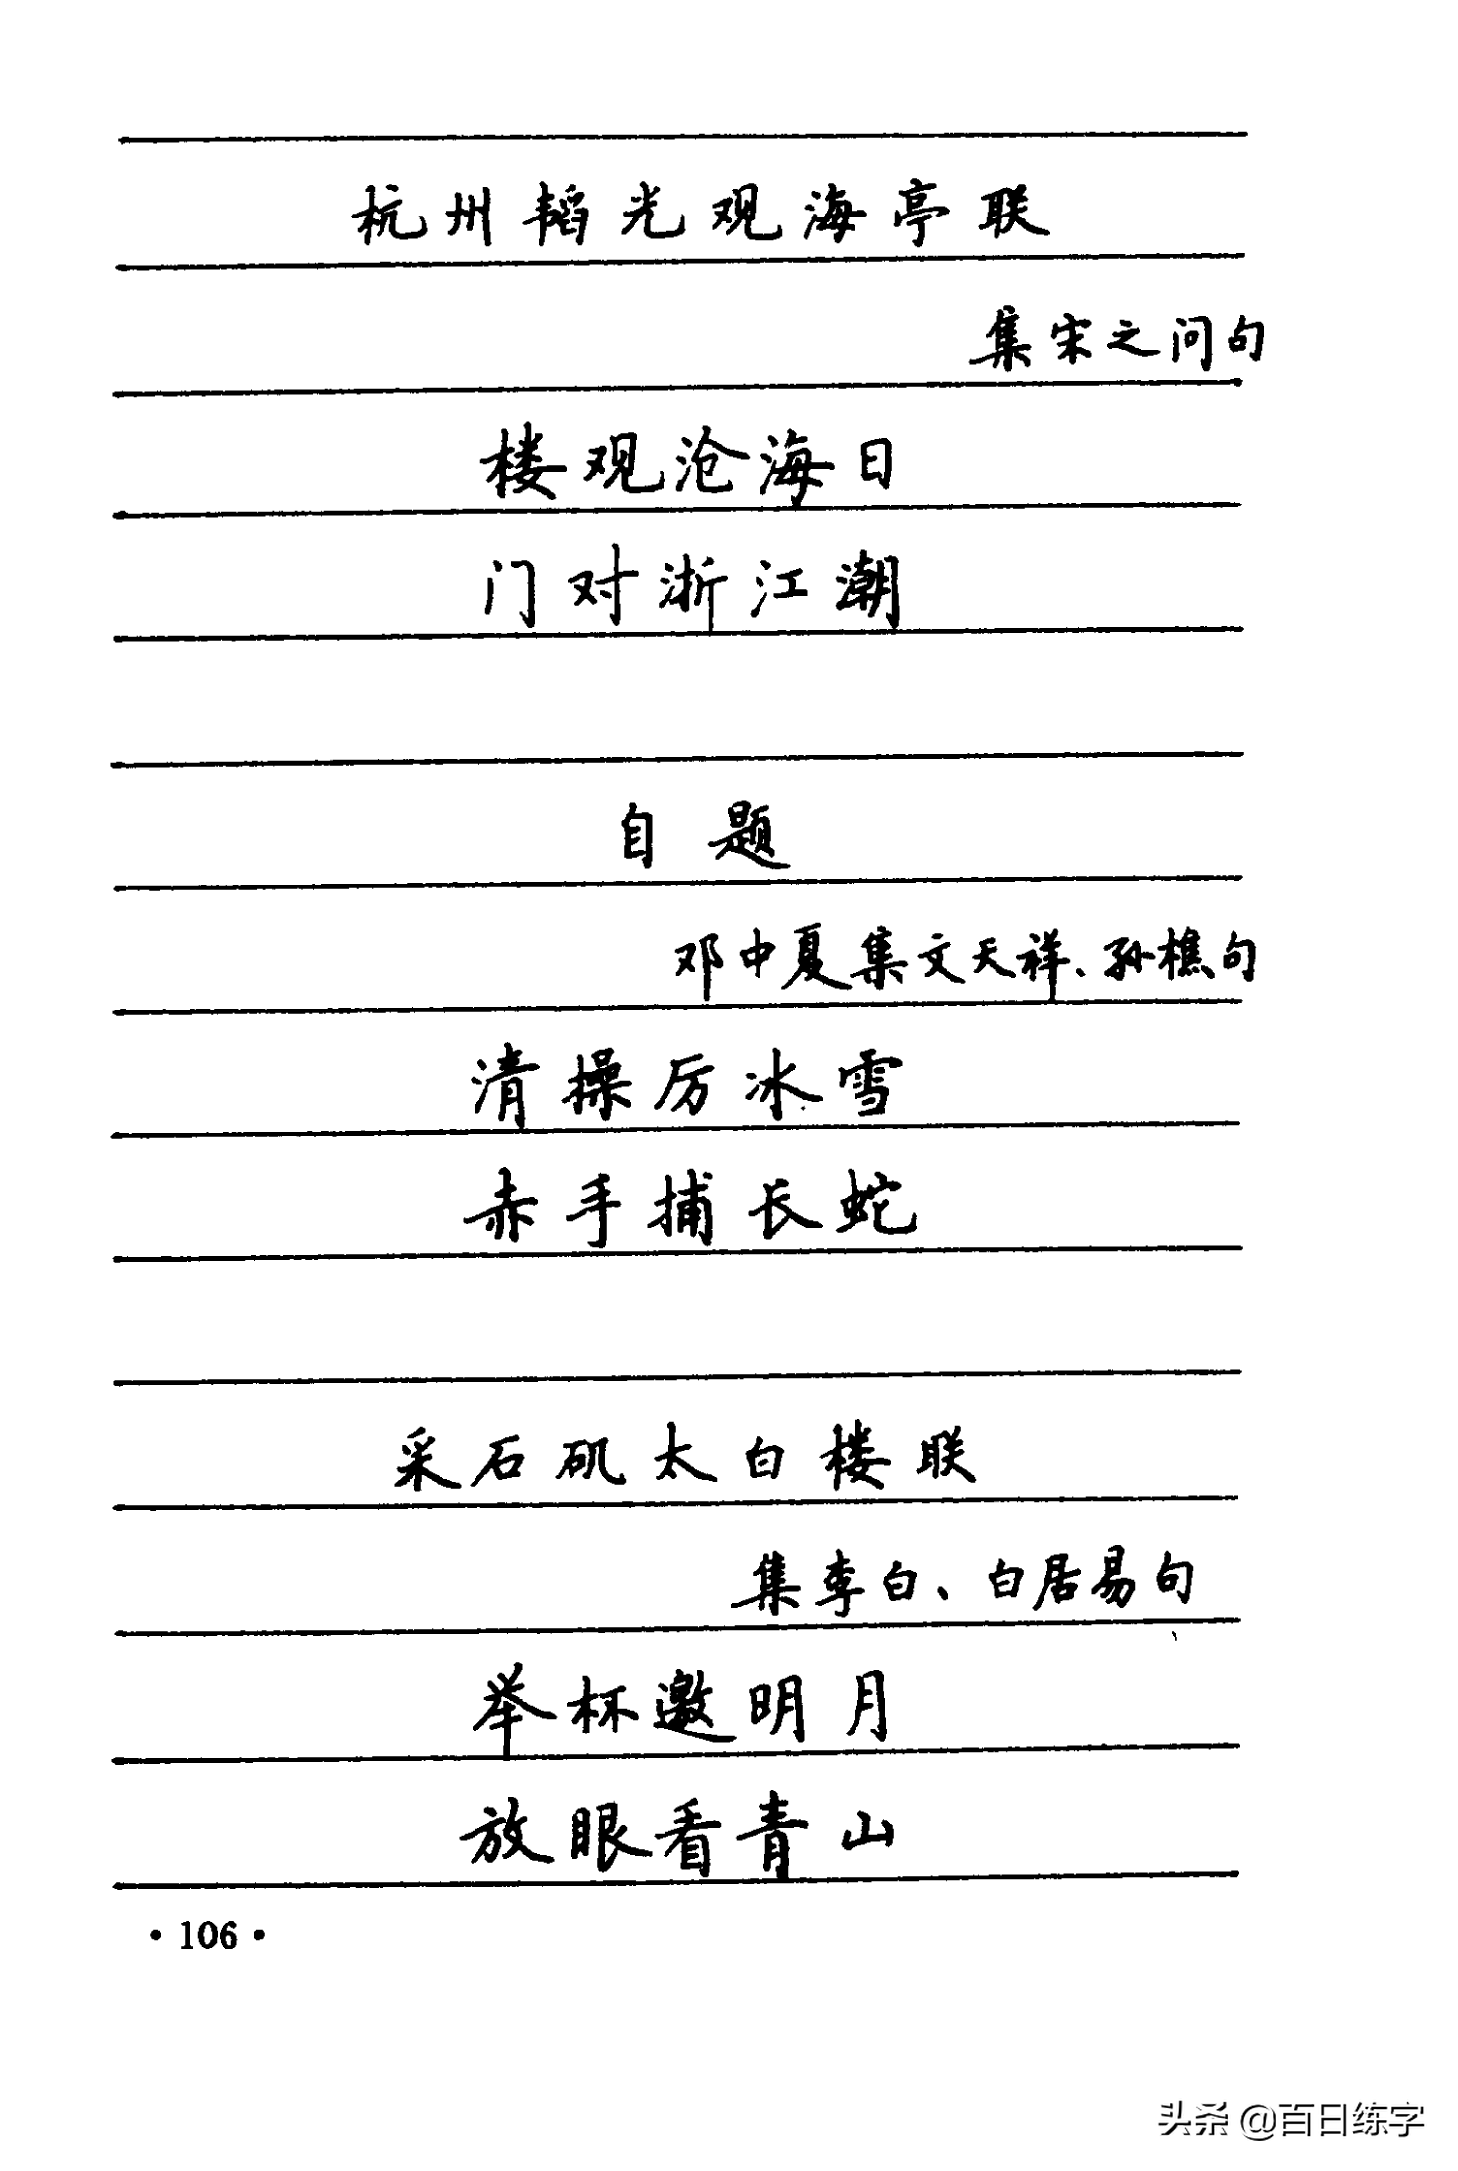 杭州韬光观海亭联
集宋之问句
楼观沧海日
门对浙江潮
自题
邓中夏集文天祥、孙樵句
清操厉冰雪
赤手捕长蛇
采石矶太白楼联
集李白、白居易句
举杯邀明月
放眼看青山
·106·
头条 @百日练字